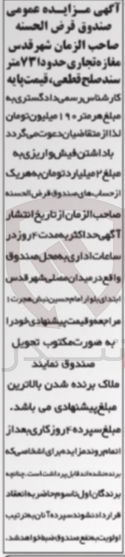 آگهی مزایده عمومی
صندوق قرض الحسنه
صاحب الزمان شهرقدس
مغازه تجاری حدودا ۷۳ متر
سند صلح قطعی، قیمت پایه
کارشناس رسمی دادگستری به
مبلغ هر متر ۱۹۰ میلیون تومان
لذا از متقاضیان دعوت می گردد
با داشتن فیش واریزی به
مبلغ ۲ میلیارد تومان به هریک
از حساب های صندوق قرض الحسنه
صاحب الزمان از تاریخ انتشار
آگهی حداکثر به مدت ۴ روز در
ساعات اداری به محل صندوق
واقع در میدان مصلی شهرقدس
ابتدای بلوار امام حسین نبش هجرت ۱
مراجعه و قیمت پیشنهادی خود را
به صورت مکتوب تحویل
صندوق نمایند
ملاک برنده شدن بالاترین
مبلغ پیشنهادی می باشد.
مبلغ سپرده ۴ روز کاری بعد از
اتمام روند مزایده برای اشخاصی که
برنده نشده اند قابل پرداخت است. چنانچه
برندگان اول تا سوم حاضر به انعقاد
قرارداد نشوند سپرده آنان به ترتیب
اولویت به نفع صندوق ضبط خواهد شد.